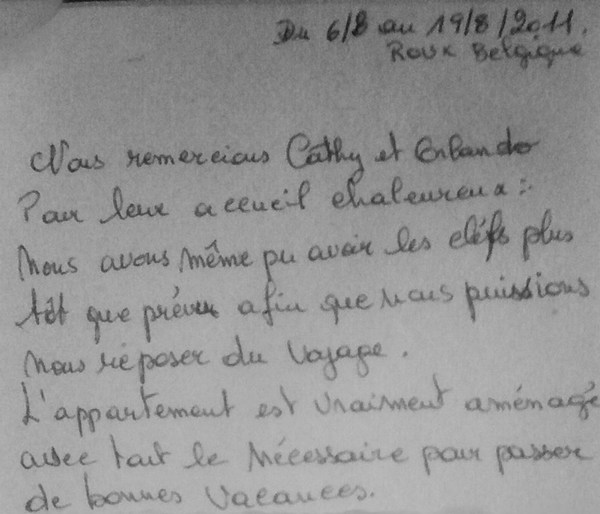 Du 6/8 au 19/8/2011.
Roux Belgique
Nous remercions Cathy et Orlando
Pour leur accueil chaleureux :
Nous avons même pu avoir les cléfs plus
tôt que prévu afin que nous puissions
nous reposer du voyage.
L'appartement est vraiment aménagé
avec tout le nécessaire pour passer
de bonnes vacances.